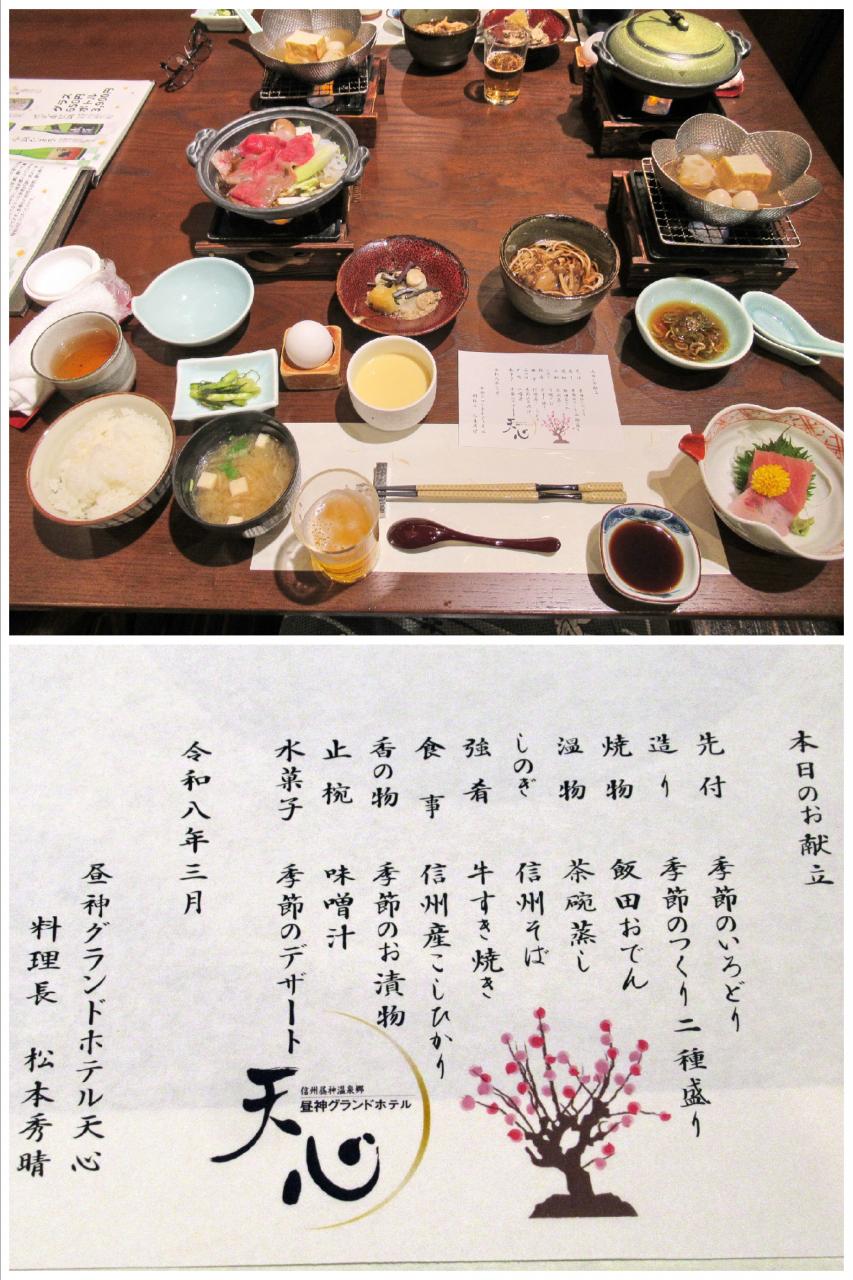 グラス 600円
ボトル 3,900円
天心
本日のお献立
先付 季節のいろどり
造り 季節のつくり二種盛り
焼物 飯田おでん
温物 茶碗蒸し
しのぎ 信州そば
強肴 牛すき焼き
食事 信州産こしひかり
香の物 季節のお漬物
止椀 味噌汁
水菓子 季節のデザート
令和八年三月
昼神グランドホテル天心
料理長 松本秀晴
天心
信州昼神温泉郷
昼神グランドホテル